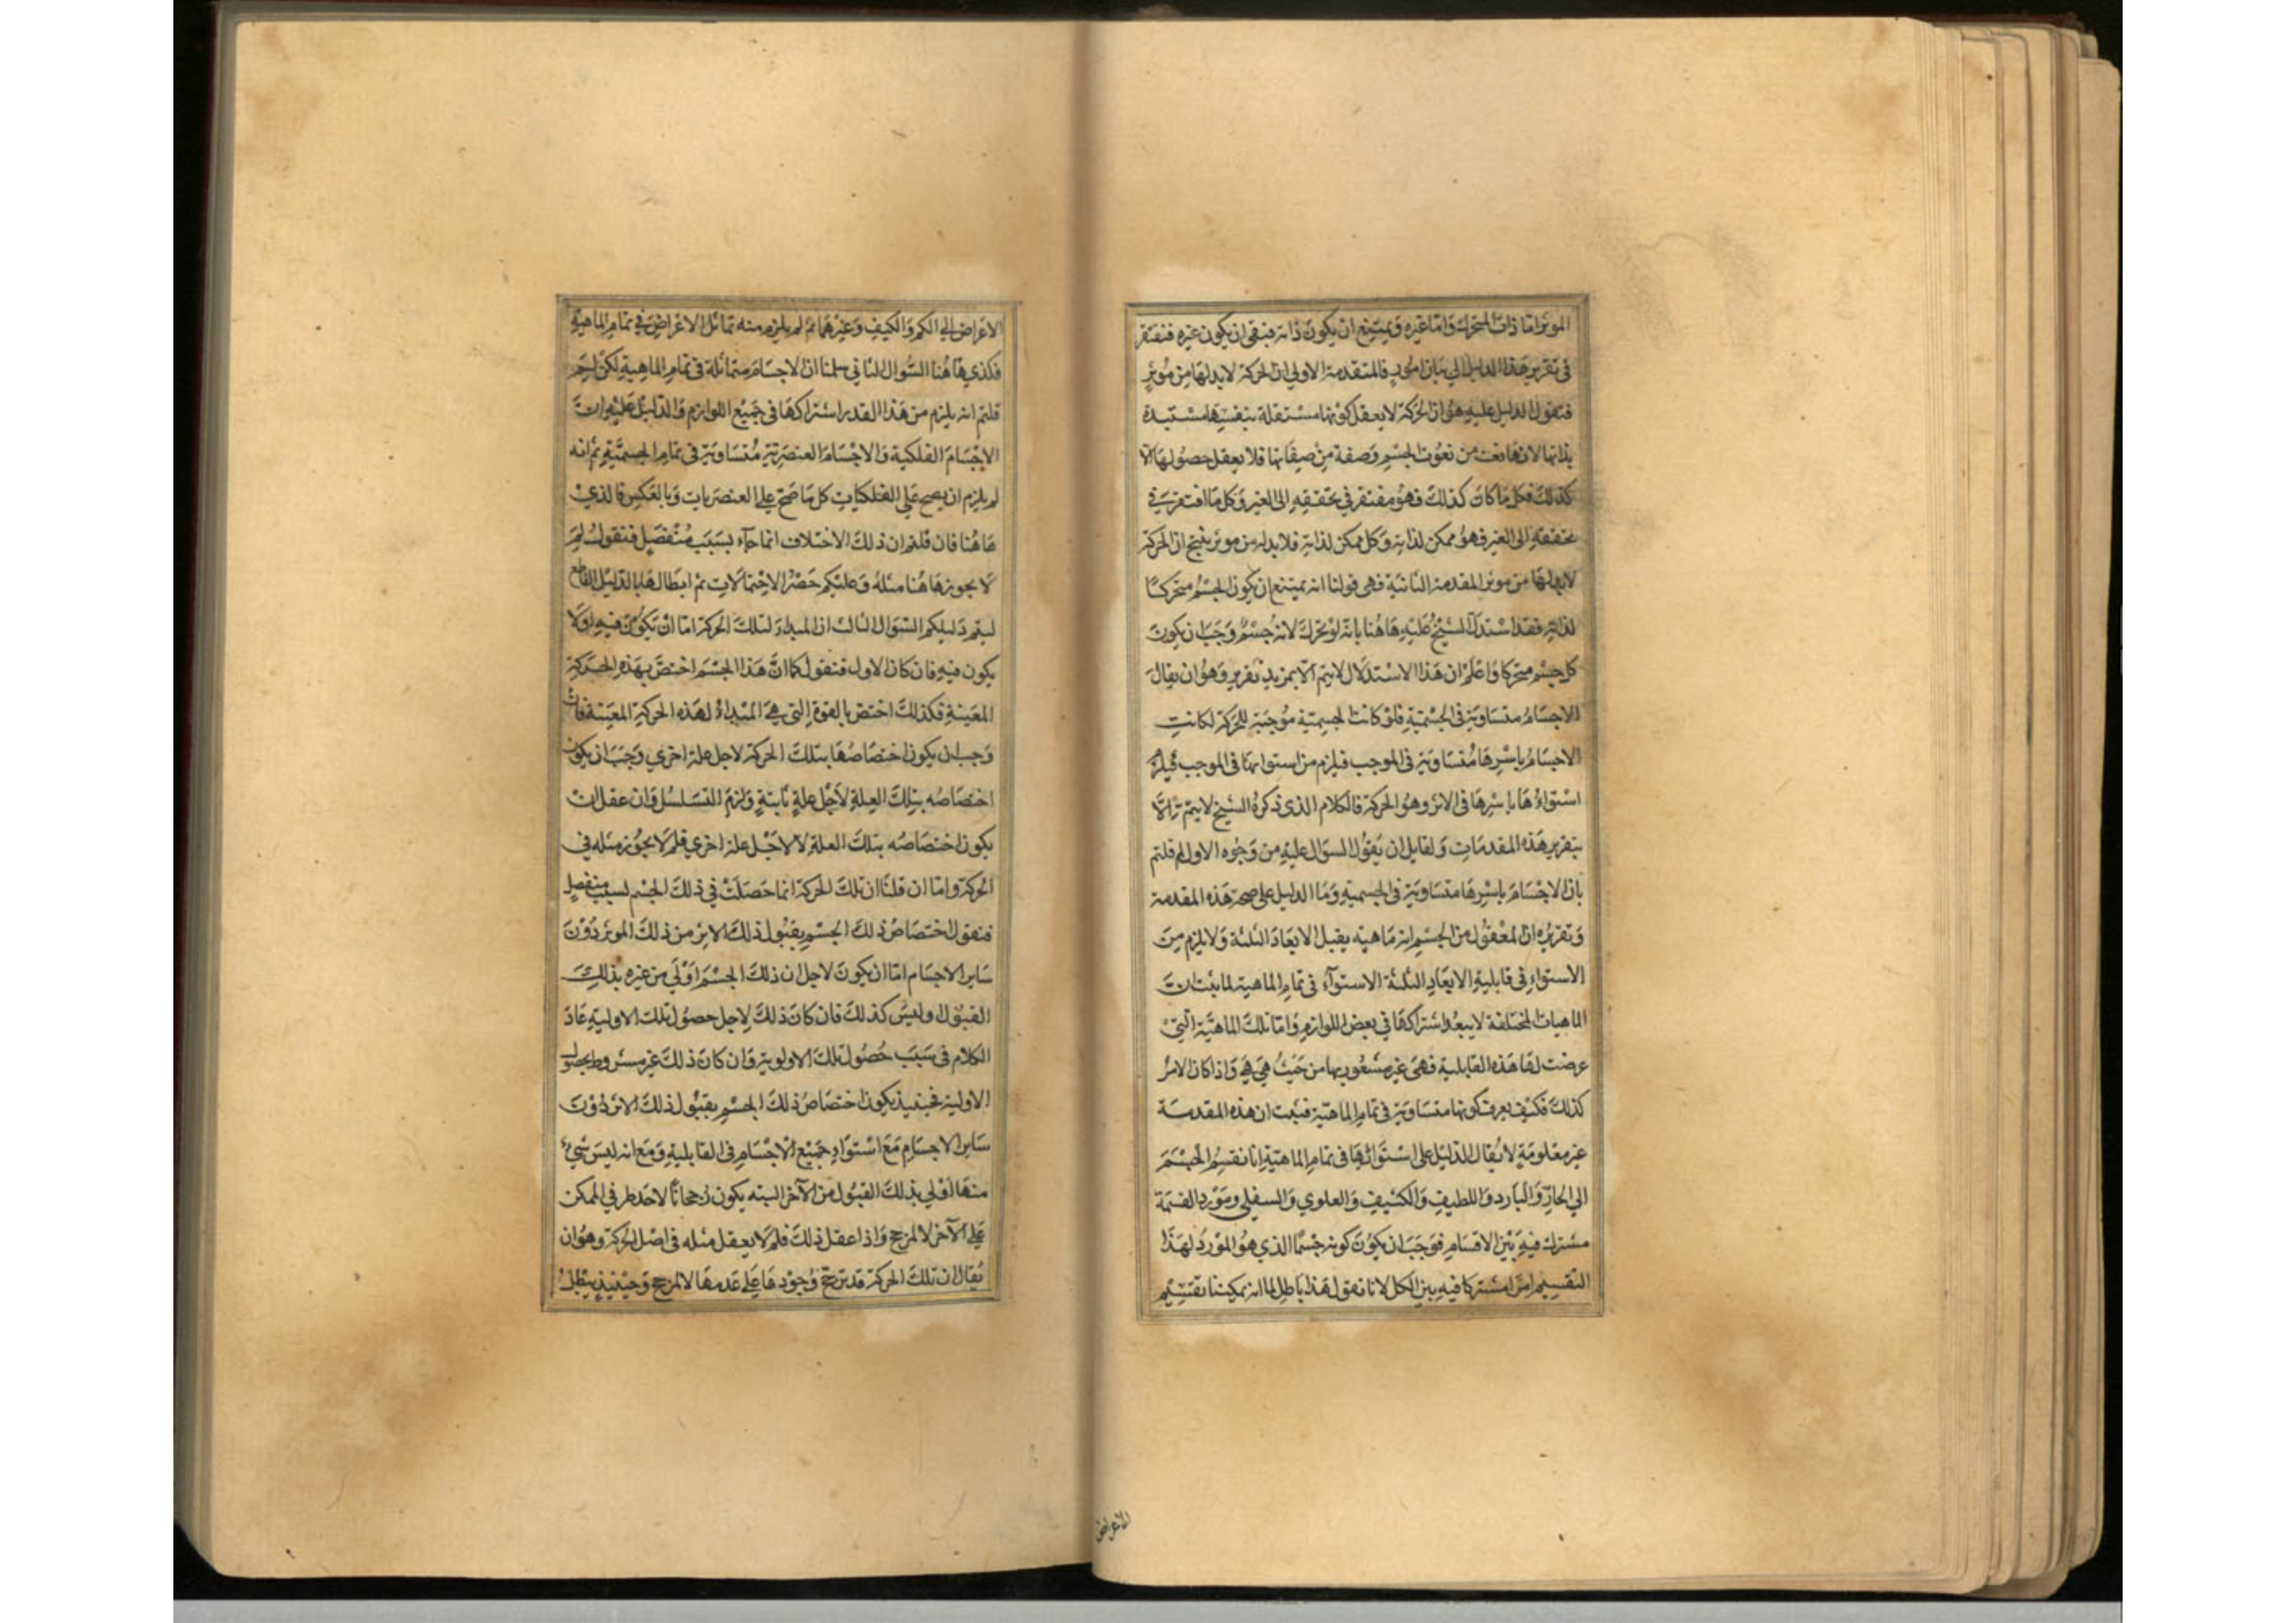 الموثر اما ذات المتحرك واما غيره ويمتنع ان يكون ذاته فبقى ان يكون غيره فنفتقر
فى تقرير هذا الدليل الي بيان امور فالمتقدمة الاولي ان الحركة لا بد لها من موثر
فنقول الدليل عليه هو ان الحركة لا يعقل كونها مستقلة بنفسها مستبدة
بذاتها لانها نعت من نعوت الجسم وصفة من صفاتها فلا يعقل حصولها الا
كذلك فكل ما كان كذلك فهو مفتقر في تحققه الى الغير وكل ما افتقر في
تحققه الى الغير فهو ممكن لذاته وكل ممكن لذاته فلا بد له من موثر ينتج ان الحركة
لا بد لها من موثر المقدمة الثانية فهى قولنا انه يمتنع ان يكون الجسم متحركا
لذاته فقد استدل الشيخ عليه هاهنا بانه لو تحرك لانه جسم وجب ان يكون
كل جسم متحركا واعلم ان هذا الاستدلال لا يتم الا بمزيد تقرير وهو ان يقال
الاجسام متساوية فى الجسمية فلو كانت الجسمية موجبة للحركة لكانت
الاجسام باسرها متساوية فى الموجب فيلزم من استوائها فى الموجب
استواءها باسرها فى الاثر وهو الحركة فالكلام الذى ذكره الشيخ لا يتم الا
بتقرير هذه المقدمات ولقايل ان يقول السوال عليه من وجوه الاول لم قلتم
بان الاجسام باسرها متساوية فى الجسمية وما الدليل على صحة هذه المقدمة
وتقريره ان المعقول من الجسم انه ماهية يقبل الابعاد الثلثة ولا يلزم من
الاستواء فى قابلية الابعاد الثلثة الاستوآء فى تمام الماهية لما ثبت ان
الماهيات المختلفة لا يبعد اشتراكها في بعض اللوازم واما تلك الماهية التي
عرضت لها هذه القابلية فهى غير مشعور بها من حيث هي هي واذا كان الامر
كذلك فكيف يعرف كونها متساوية فى تمام الماهية فثبت ان هذه المقدمة
غير معلومة لا يقال الدليل على استوائها فى تمام الماهية انا نقسم الجسم
الي الحار والبارد واللطيف والكثيف والعلوي والسفلي ومورد القسمة
مشترك فيه بين الاقسام فوجب ان يكون كونه جسما الذي هو المورد لهذا
التقسيم امرا مشتركا فيه بين الكل لانا نقول هذا باطل لما انه يمكننا تقسيم
الاعراض
الاعراض الي الكم والكيف وغيرهما ثم لم يلزم منه تماثل الاعراض في تمام الماهية
فكذي هاهنا السوال الثاني سلمنا ان الاجسام متماثلة فى تمام الماهية لكن لم
قلتم انه يلزم من هذا القدر اشتراكها في جميع اللوازم والدليل عليه ان
الاجسام الفلكية والاجسام العنصرية متساوية فى تمام الجسمية ثم انه
لم يلزم ان يصح علي الفلكيات كل ما صح علي العنصريات وبالعكس فالذي
هاهنا فان قلتم ان ذلك الاختلاف انما جآء بسبب منفصل فنقول لم
لا يجوز هاهنا مثله وعليكم حصر الاحتمالات ثم ابطالها بالدليل القاطع
ليتم دليلكم السوال الثالث ان المبداء لتلك الحركة اما ان يكون فيه او لا
يكون فيه فان كان الاول فنقول كما ان هذا الجسم اختص بهذه الحركة
المعينة فكذلك اختص بالقوة التي هي المبداء لهذه الحركة المعينة فان
وجب ان يكون اختصاصها بتلك الحركة لاجل علة اخري وجب ان يكون
اختصاصه بتلك العلة لاجل علة ثانية ولزم التسلسل وان عقل ان
يكون اختصاصه بتلك العلة لا لاجل علة اخري فلم لا يجوز مثله في
الحركة واما ان قلنا ان تلك الحركة انما حصلت في ذلك الجسم لسبب منفصل
فنقول اختصاص ذلك الجسم بقبول ذلك الاثر من ذلك الموثر دون
ساير الاجسام اما ان يكون لاجل ان ذلك الجسم اولي من غيره بذلك
القبول او ليس كذلك فان كان ذلك لاجل حصول تلك الاولية عاد
الكلام فى سبب حصول تلك الاولوية وان كان ذلك غير مشروط بحصول
الاولية فحينيذ يكون اختصاص ذلك الجسم بقبول ذلك الاثر دون
ساير الاجسام مع استواء جميع الاجسام فى القابلية ومع انه ليس شيء
منها اولي بذلك القبول من الآخر البتة يكون رجحانا لاحد طرفي الممكن
علي الآخر لا لمرجح واذا عقل ذلك فلم لا يعقل مثله فى اصل الحركة وهو ان
يقال ان تلك الحركة قد ترجح وجودها علي عدمها لا لمرجح وحينيذ يبطل